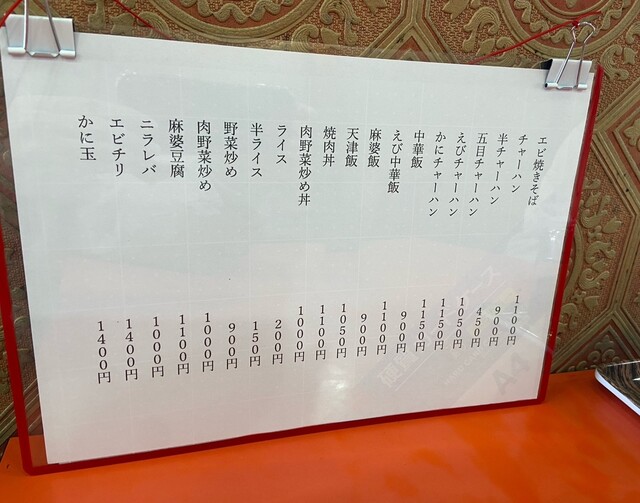 エビ焼きそば １１００円
チャーハン ９００円
半チャーハン ４５０円
五目チャーハン １０５０円
えびチャーハン １１５０円
かにチャーハン １１５０円
中華飯 ９００円
えび中華飯 １１００円
麻婆飯 ９００円
天津飯 １０５０円
焼肉丼 １１００円
肉野菜炒め丼 １０００円
ライス ２００円
半ライス １５０円
野菜炒め ９００円
肉野菜炒め １０００円
麻婆豆腐 １１００円
ニラレバ １０００円
エビチリ １４００円
かに玉 １４００円
A4